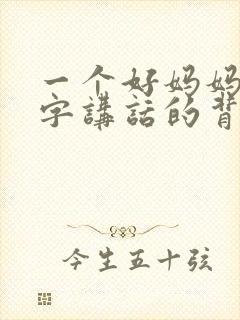 一个好妈妈
字講話的背
今生五十弦